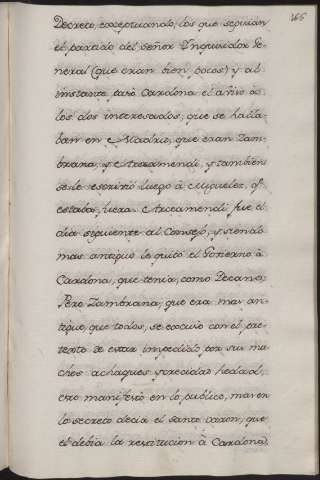 166
Decreto, exceptuando, los que seguian
el partido del Señor Ynquisidor Ge-
neral (que eran bien pocos) y al
instante pasó Cardona el aviso à
los dos interesados, que se halla-
ban en Madrid, que eran Zam-
brana, y Arzeamendi, y tambien
se le escrivió luego à Miguelez, qe.
estaba fuera. Arzeamendi fue el
dia siguiente al Consejo, y siendo
mas antiguo le quitó el Govierno à
Cardona, que tenia, como Decano;
Pero Zambrana, que era mas an-
tiguo, que todos, se escusó con el pre-
texto de estar impedido por sus mu-
chos achaques y crecida hedad,
esto manifestó en lo publico, mas en
lo secreto decia el santo varon, que
el debia la restitucion à Cardona,